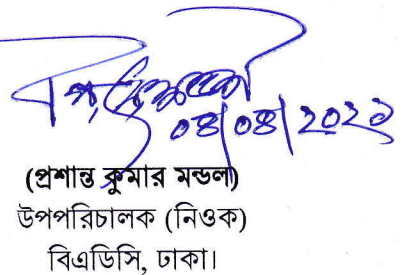 ০৪/০৪/২০২১
(প্রশান্ত কুমার মন্ডল)
উপপরিচালক (নিওক)
বিএডিসি, ঢাকা।